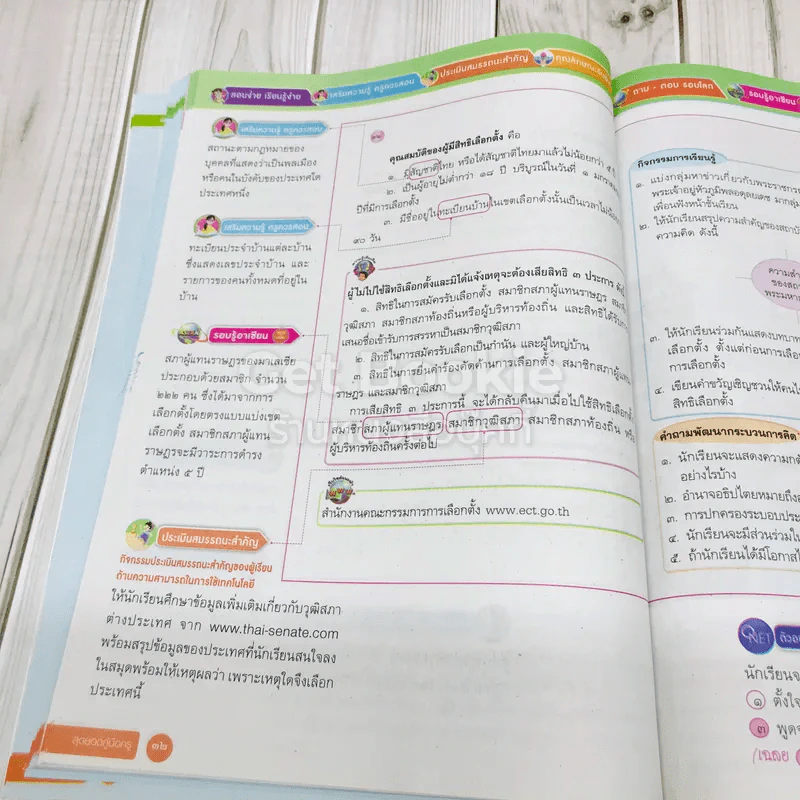 สอนง่าย เรียนรู้ง่าย
เสริมความรู้ ครูควรสอน
ประเมินสมรรถนะสำคัญ
เสริมความรู้ ครูควรสอน
สถานะตามกฎหมายของ
บุคคลที่แสดงว่าเป็นพลเมือง
หรือคนในบังคับของประเทศใด
ประเทศหนึ่ง
เสริมความรู้ ครูควรสอน
ทะเบียนประจำบ้านแต่ละบ้าน
ซึ่งแสดงเลขประจำบ้าน และ
รายการของคนทั้งหมดที่อยู่ใน
บ้าน
รอบรู้อาเซียน
สภาผู้แทนราษฎรของมาเลเซีย
ประกอบด้วยสมาชิก จำนวน
๒๒๒ คน ซึ่งได้มาจากการ
เลือกตั้งโดยตรงแบบแบ่งเขต
เลือกตั้ง สมาชิกสภาผู้แทน
ราษฎรจะมีวาระการดำรง
ตำแหน่ง ๕ ปี
ประเมินสมรรถนะสำคัญ
กิจกรรมประเมินสมรรถนะสำคัญของผู้เรียน
ด้านความสามารถในการใช้เทคโนโลยี
ให้นักเรียนศึกษาข้อมูลเพิ่มเติมเกี่ยวกับวุฒิสภา
ต่างประเทศ จาก www.thai-senate.com
พร้อมสรุปข้อมูลของประเทศที่นักเรียนสนใจลง
ในสมุดพร้อมให้เหตุผลว่า เพราะเหตุใดจึงเลือก
ประเทศนี้
สุดยอดคู่มือครู ๓๒
คุณสมบัติของผู้มีสิทธิเลือกตั้ง คือ
๑. มีสัญชาติไทย หรือได้สัญชาติไทยมาแล้วไม่น้อยกว่า ๕
๒. เป็นผู้อายุไม่ต่ำกว่า ๑๘ ปี บริบูรณ์ในวันที่ ๑
ปีที่มีการเลือกตั้ง
๓. มีชื่ออยู่ในทะเบียนบ้านในเขตเลือกตั้งนั้นเป็นเวลา
๙๐ วัน
ผู้ไม่ไปใช้สิทธิเลือกตั้งและมิได้แจ้งเหตุจะต้องเสียสิทธิ ๓ ประการ
๑. สิทธิในการสมัครรับเลือกตั้ง สมาชิกสภาผู้แทนราษฎร
วุฒิสภา สมาชิกสภาท้องถิ่นหรือผู้บริหารท้องถิ่น และสิทธิได้รับ
เสนอชื่อเข้ารับการสรรหาเป็นสมาชิกวุฒิสภา
๒. สิทธิในการสมัครรับเลือกเป็นกำนัน และผู้ใหญ่บ้าน
๓. สิทธิในการยื่นคำร้องคัดค้านการเลือกตั้ง สมาชิกสภาผู้แทน
ราษฎร และสมาชิกวุฒิสภา
การเสียสิทธิ ๓ ประการนี้ จะได้กลับคืนมาเมื่อไปใช้สิทธิเลือกตั้ง
สมาชิกสภาผู้แทนราษฎร สมาชิกวุฒิสภา สมาชิกสภาท้องถิ่น หรือ
ผู้บริหารท้องถิ่นครั้งต่อไป
สำนักงานคณะกรรมการการเลือกตั้ง www.ect.go.th
ถาม - ตอบ รอบโลก
รอบรู้อาเซียน
กิจกรรมการเรียนรู้
๑. แบ่งกลุ่มหาข่าวเกี่ยวกับพระราชกร
พระเจ้าอยู่หัวภูมิพลอดุลยเดช มากลุ่ม
เพื่อนฟังหน้าชั้นเรียน
๒. ให้นักเรียนสรุปความสำคัญของสถาบั
ความคิด ดังนี้
ความสำ
ของสถา
พระมหา
๓. ให้นักเรียนร่วมกันแสดงบทบาท
เลือกตั้ง ตั้งแต่ก่อนการเลือก
การเลือกตั้ง
๔. เขียนคำขวัญเชิญชวนให้คนไ
สิทธิเลือกตั้ง
คำถามพัฒนากระบวนการคิด
๑. นักเรียนจะแสดงความกต
อย่างไรบ้าง
๒. อำนาจอธิปไตยหมายถึงอ
๓. การปกครองระบอบประ
๔. นักเรียนจะมีส่วนร่วมใน
๕. ถ้านักเรียนได้มีโอกาสไ
NET
นักเรียนจะ
๑ ตั้งใจ
๓ พูดจ
(เฉลย
Get Bookie